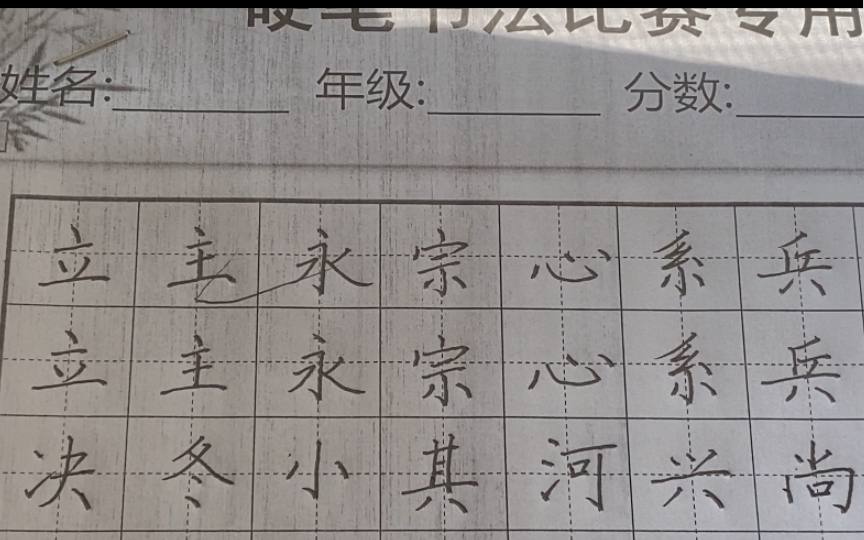 硬笔书法比赛专用
姓名: 年级: 分数:
立主永宗心系兵
立主永宗心系兵
决冬小其河兴尚